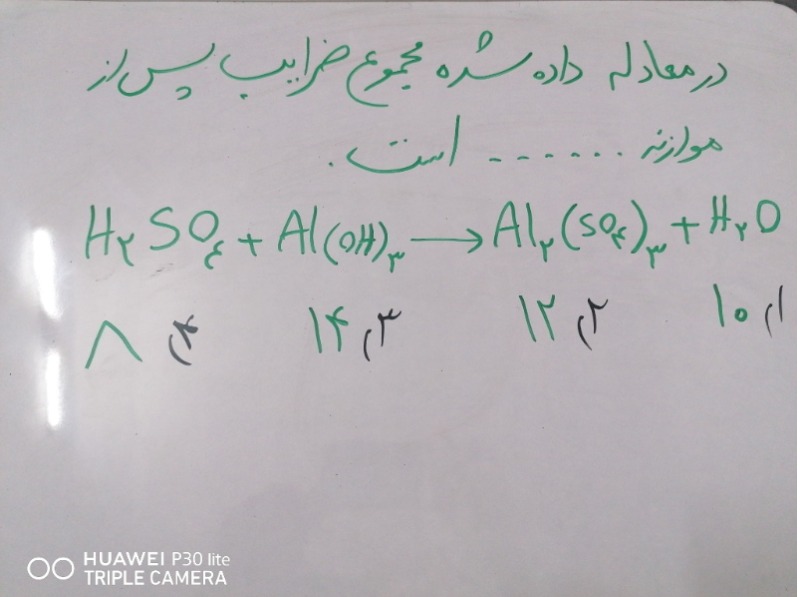 در معادله داده شده مجموع ضرایب پس از
موازنه ...... است.
H₂SO₄ + Al(OH)₃ → Al₂(SO₄)₃ + H₂O
۱) ۱۰ ۲) ۱۲ ۳) ۱۴ ۴) ۸
HUAWEI P30 lite
TRIPLE CAMERA